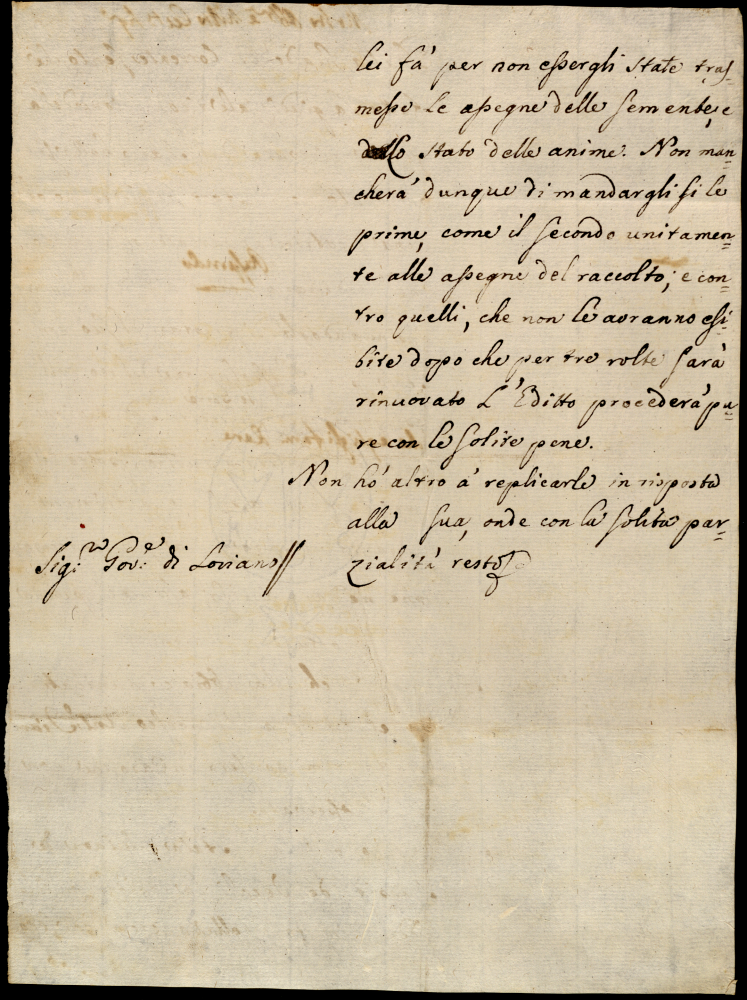 lei fà per non essergli state tras=
messe le assegne delle semente, e
dello stato delle anime. Non man=
cherà dunque di mandarglisi le
prime, come il secondo unitamen=
te alle assegne del raccolto; e con=
tro quelli, che non le avranno esi=
bite dopo che per tre volte sarà
rinuovato L'Editto procederà pu=
re con le solite pene.
Non hò altro à replicarle in risposta
alla sua, onde con la solita par=
zialità resto
Sig.re Gov.e di Loviano